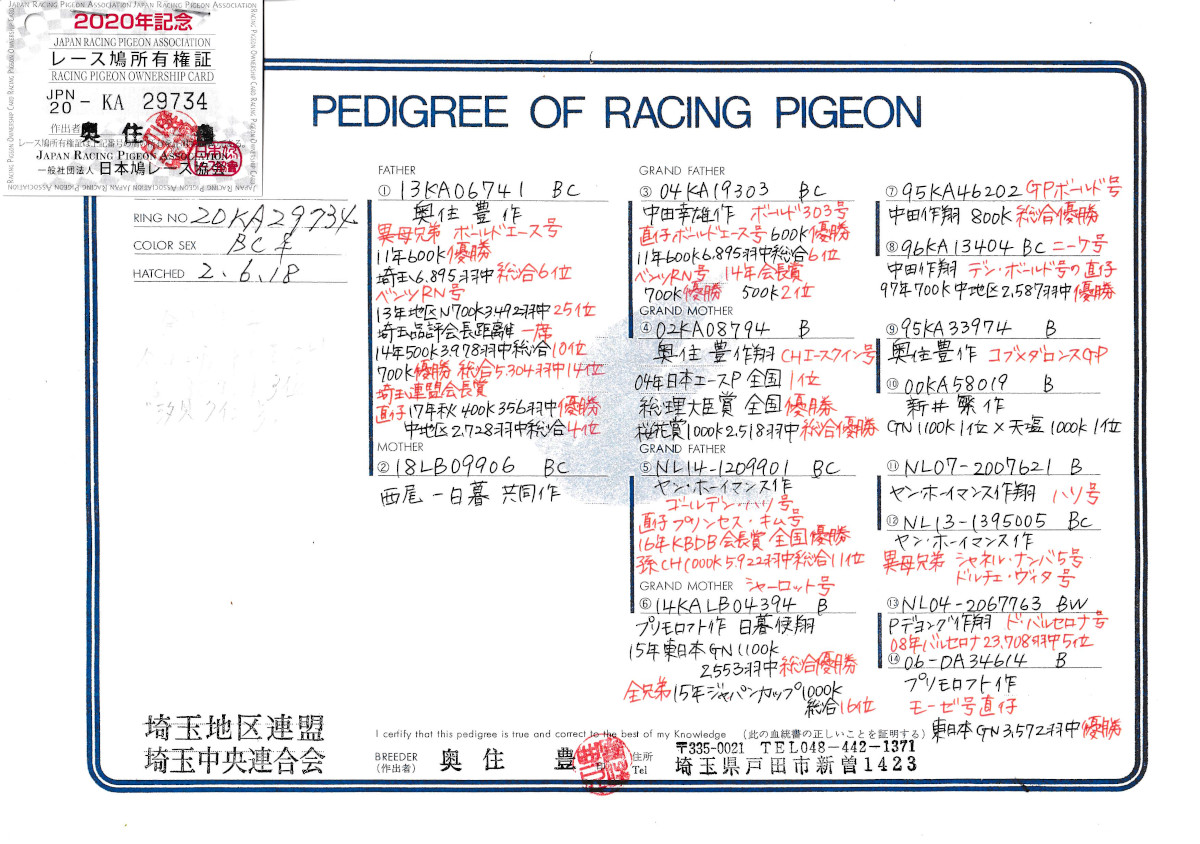 JAPAN RACING PIGEON ASSOCIATION JAPAN RACING PIGEON ASSOCIATION
2020年記念
JAPAN RACING PIGEON ASSOCIATION
レース鳩所有権証
RACING PIGEON OWNERSHIP CARD
JPN
20 - KA 29734
作出者 奥住 豊
JAPAN RACING PIGEON ASSOCIATION
一般社団法人 日本鳩レース協会
PEDIGREE OF RACING PIGEON
RING NO 20KA29734
COLOR SEX BC ♀
HATCHED 2.6.18
FATHER
① 13KA06741 BC
奥住 豊 作
異母兄弟 ボールドエース号
11年600K優勝
埼玉6.895羽中総合6位
ベンツRN号
13年地区N700K3.492羽中25位
埼玉品評会長距離一席
14年500K3.978羽中総合10位
700K優勝 総合5.304羽中14位
埼玉連盟会長賞
直仔17年秋400K356羽中優勝
中地区2.728羽中総合4位
MOTHER
② 18LB09906 BC
西尾 一 日暮 共同作
GRAND FATHER
③ 04KA19303 BC
中田幸雄作 ボールド303号
直仔ボールドエース号600K優勝
11年600K6.895羽中総合6位
ベンツRN号 14年会長賞
700K優勝 500K2位
GRAND MOTHER
④ 02KA08794 B
奥住 豊作翔 CHエースクイン号
04年日本エースP 全国1位
総理大臣賞 全国優勝
桜花賞1000K2.518羽中総合優勝
GRAND FATHER
⑤ NL14-1209901 BC
ヤン・ホーイマンス作
ゴールデン・ハリ号
直仔プリンセス・キム号
16年KBDB会長賞 全国優勝
孫CH1000K5.922羽中総合11位
GRAND MOTHER シャーロット号
⑥ 14KALB04394 B
プリモロフト作 日暮使翔
15年東日本GN1100K
2553羽中総合優勝
全兄弟15年ジャパンカップ1000K
総合16位
⑦ 95KA46202 GPボールド号
中田作翔 800K 総合優勝
⑧ 96KA13404 BC ニーケ号
中田作翔 デン・ボールド号の直仔
97年700K中地区2,587羽中優勝
⑨ 95KA33974 B
奥住豊作 コブ×ダロンスGP
⑩ 00KA58019 B
新井 繁 作
GN1100K1位×天塩1000K1位
⑪ NL07-2007621 B
ヤンホーイマンス作翔 ハリ号
⑫ NL13-1395005 BC
ヤン・ホーイマンス作
異母兄弟 シャネル・ナンバ5号
ドルチェ・ヴィタ号
⑬ NL04-2067763 BW
Pデヨング作翔 ド・バルセロナ号
08年バルセロナ23,708羽中5位
⑭ 06-DA34614 B
プリモロフト作
モーゼ号直仔
東日本GN3,572羽中優勝
埼玉地区連盟
埼玉中央連合会
I certify that this pedigree is true and correct to the best of my Knowledge (此の血統書の正しいことを証明する)
BREEDER
(作出者) 奥 住 豊 印
住所
Tel
〒335-0021 TEL048-442-1371
埼玉県戸田市新曽1423